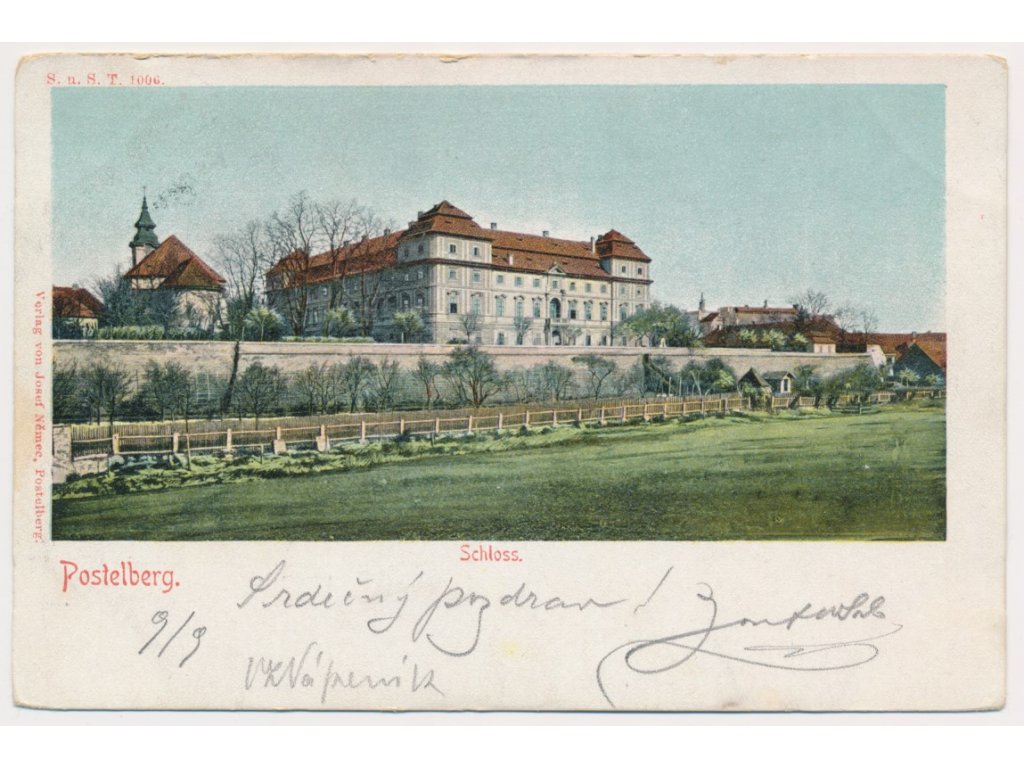 S. u. S. T. 1006.
Verlag von Josef Němec, Postelberg.
Schloss.
Postelberg.
Srdečný pozdrav!
9/9